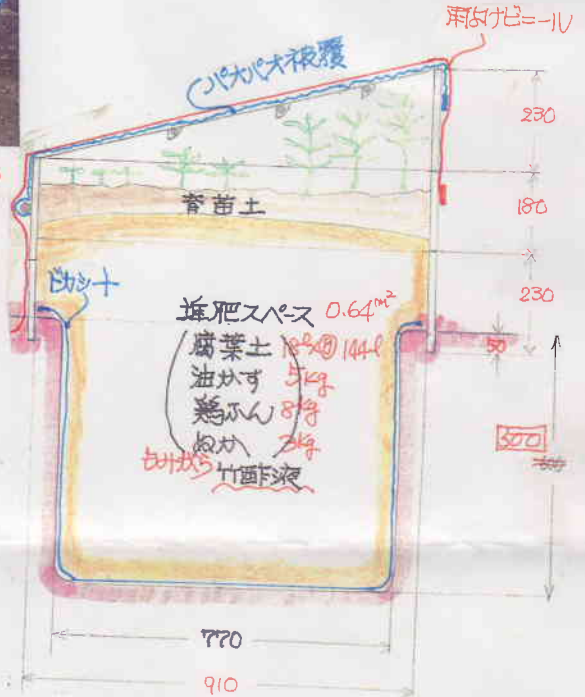 雨よけビニール
パオパオ被覆
230
育苗土
180
ピカシート
230
堆肥スペース 0.64m²
腐葉土 18ℓ×⑧ 144ℓ
50
油かす 5kg
鶏ふん 8kg
ぬか 3kg
もみがら
竹酢液
500
770
910